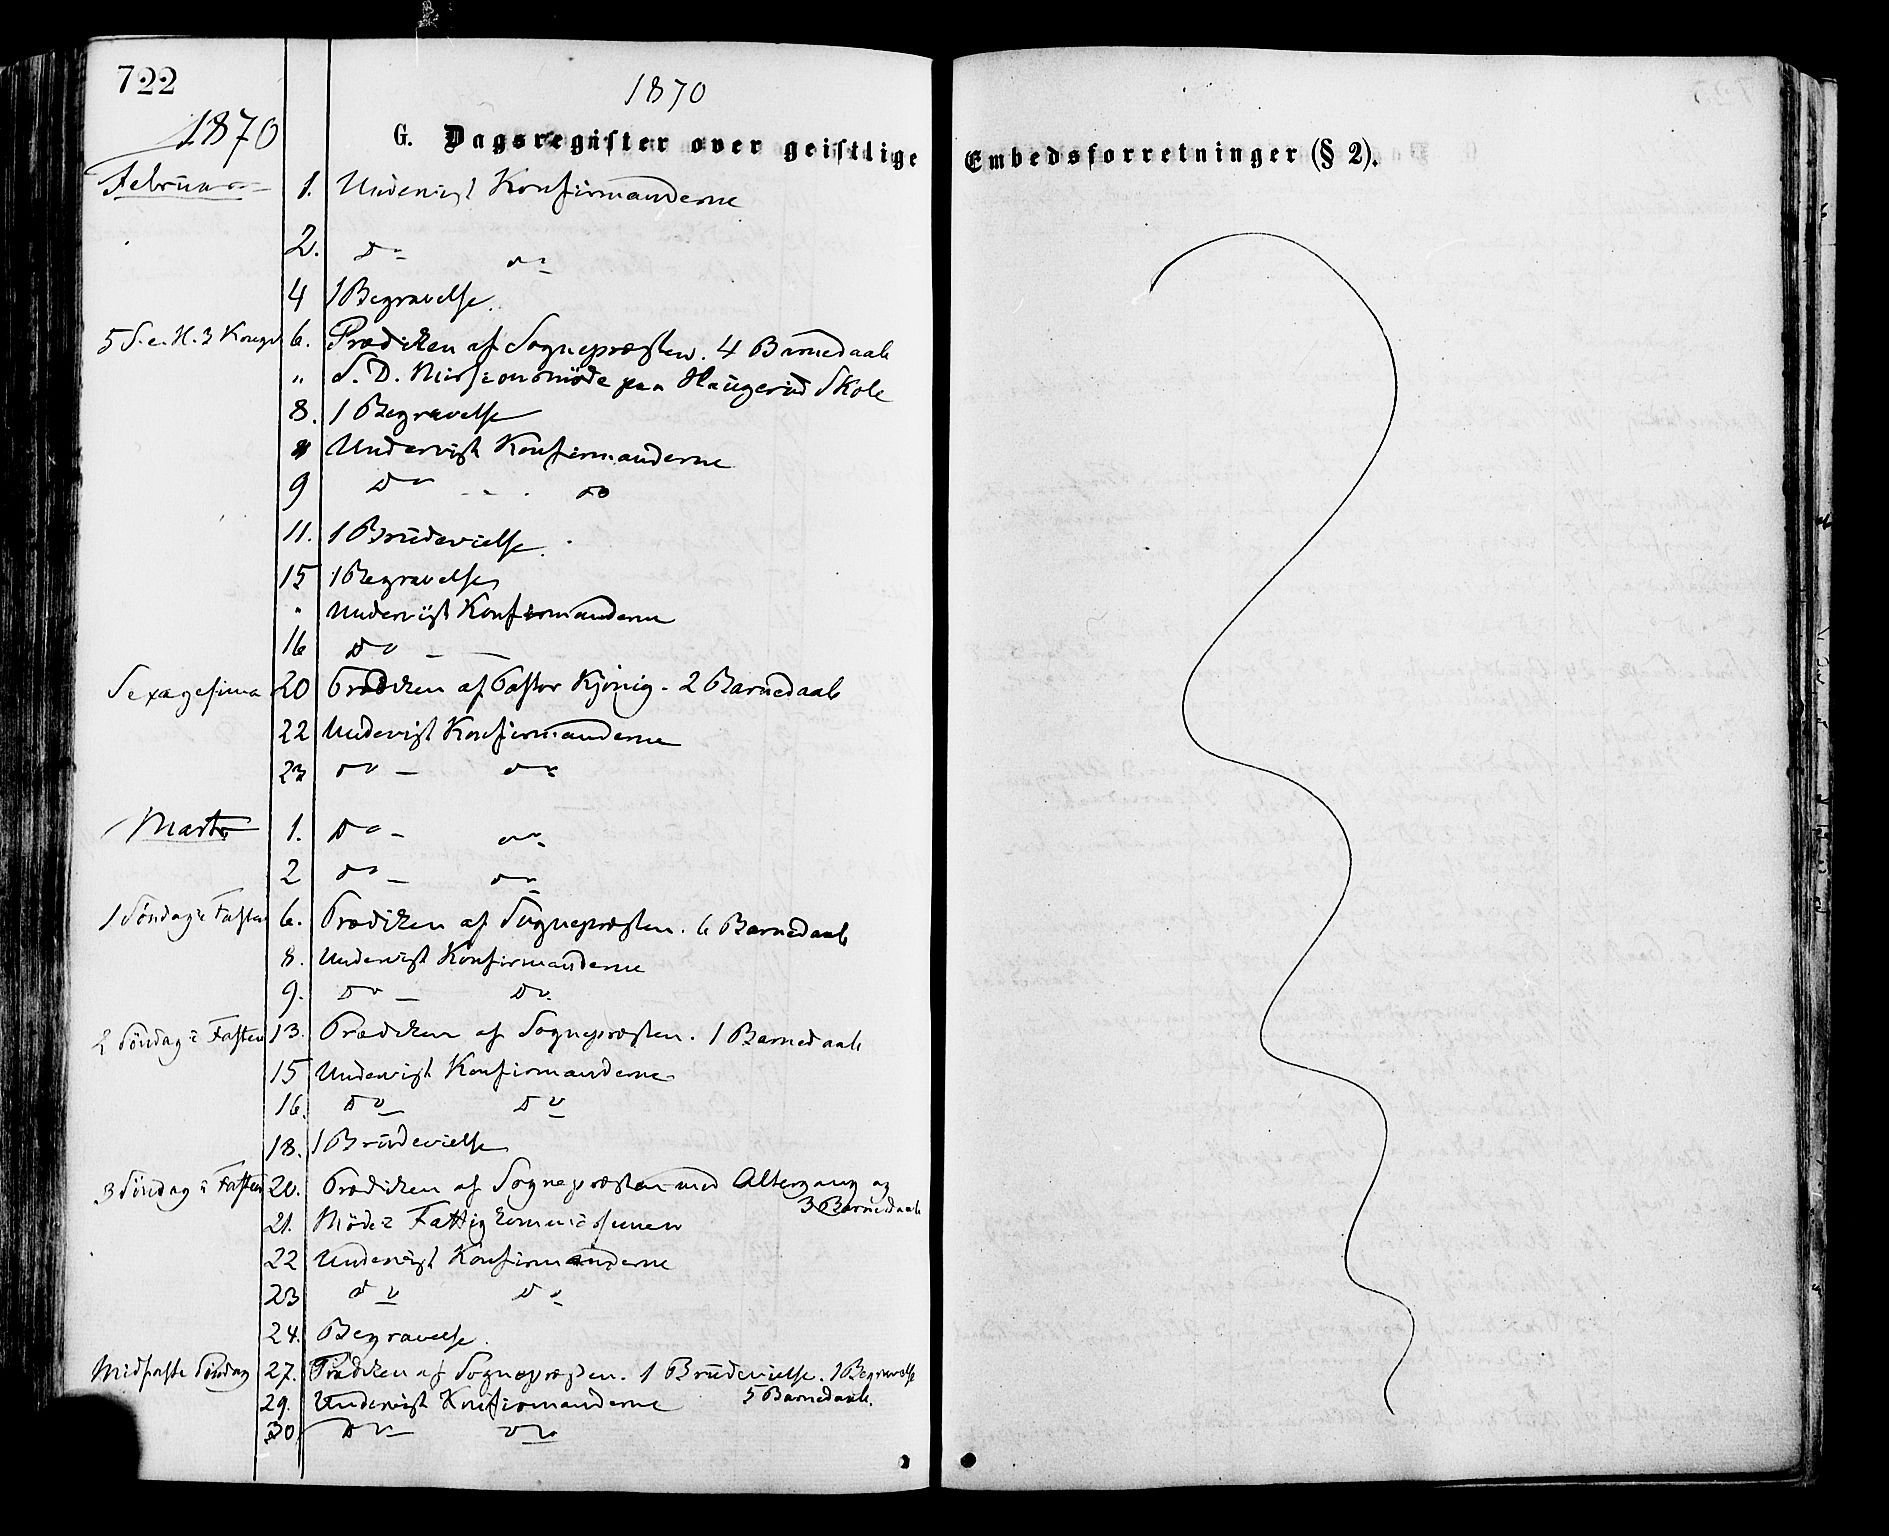 722
1870
1870
G. Dagsregister over geistlige Embedsforretninger (§ 2).
Februar 1. Underviist Konfirmanderne
2. Do do
4 1 Begravelse.
5 S. e. H. 3 Konger 6. Prædiken af Sognepræsten. 4 Barnedaab
" S. D. Missionsmøde paa Haugerud Skole
8. 1 Begravelse
" Underviist Konfirmanderne
9 Do - - - do
11. 1 Brudevielse.
15 1 Begravelse
" Underviist Konfirmanderne
16 Do — —
Sexagesima 20 Prædiken af Pastor Kjønig - 2 Barnedaab
22 Underviist Konfirmanderne
23 do — do
Marts 1. Do - do
2 do — do
1 Søndag i Fasten 6. Prædiken af Sognepræsten. 6 Barnedaab
8. Underviist Konfirmanderne
9. Do — Do.
2 Søndag i Fasten 13. Prædiken af Sognepræsten. 1 Barnedaab
15 Underviist Konfirmanderne
16. Do Do
18. 1 Brudevielse
3 Søndag i Fasten 20. Prædiken af Sognepræsten med Altergang og
3 Barnedaab
21. Møde i Fattigkommissionen
22 Underviist Konfirmanderne
23 do Do
24. Begravelse.
Midfaste Søndag 27. Prædiken af Sognepræsten. 1 Brudevielse. 1 Begravelse
5 Barnedaab.
29. Underviist Konfirmanderne
30 Do do